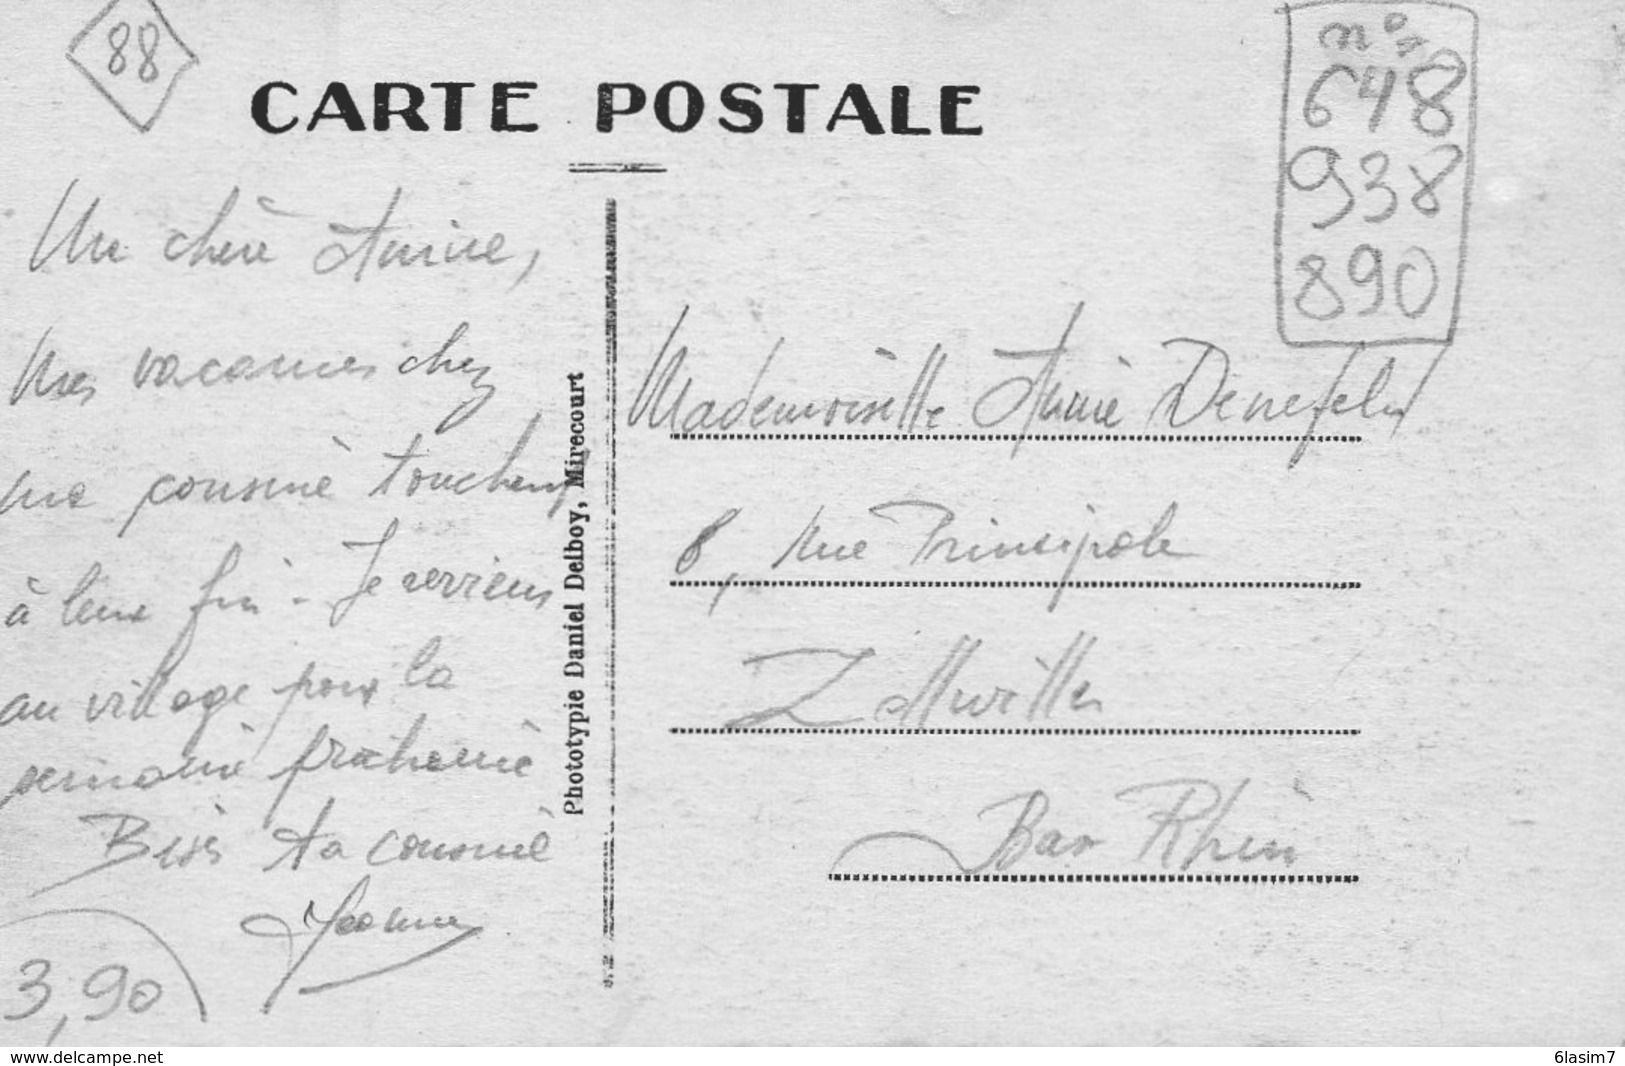 88
CARTE POSTALE
n°s
648
938
890
Ma chère Annie,
Mes vacances chez
ma cousine touchent
à leur fin - Je reviens
au village pour la
semaine prochaine
Bises ta cousine
Jeanne
3,90
Phototypie Daniel Delboy, Mirecourt
Mademoiselle Annie
8, Rue Principale
Zellwiller
Bas Rhin
www.delcampe.net
6lasim7